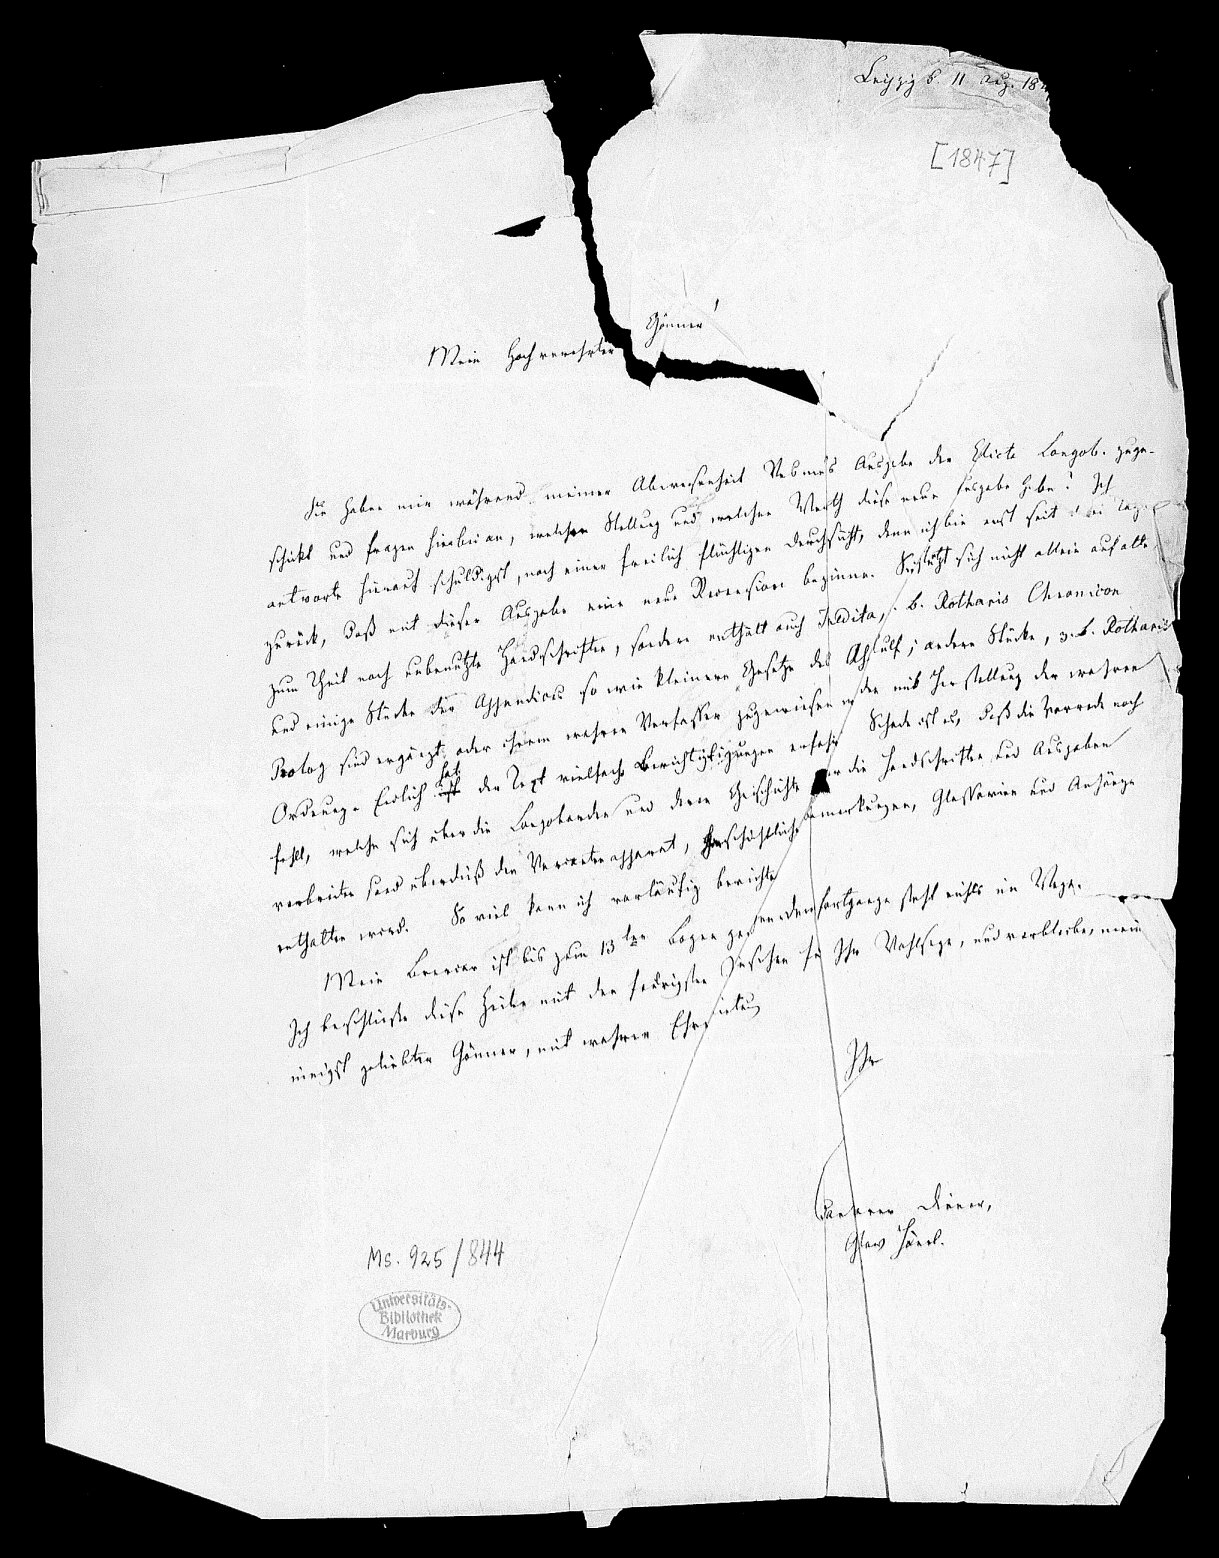 Leipzig d. 11 Aug. 184
[1847]
Mein hochverehrter Gönner!
Sie haben mir während meiner Abwesenheit Vesme's Ausgabe der Edicta Longob. zuge-
schickt und fragen hierbei an, welche Stellung und welchen Werth diese neue Ausgabe habe? Ich
antworte hierauf schuldigst, nach einer freilich flüchtigen Durchsicht, denn ich bin erst seit drei Tagen
zurück, daß mit dieser Ausgabe eine neue Recension beginne. Sie stützt sich nicht allein auf alte
zum Theil noch unbenutzte Handschriften, sondern enthält auch Inedita, z. B. Rotharis Chronicon
und einige Stücke der Appendices so wie kleinere Gesetze des Ahistulf; andere Stücke, z. B. Rotharis
Prolog sind ergänzt oder ihrem wahren Verfasser zugewiesen worden mit Herstellung der wahren
Ordnung. Endlich hat der Text vielfache Berichtigungen erfahren. Schade ist es, daß die Vorrede noch
fehlt, welche sich über die Longobarden und deren Geschichte über die Handschriften und Ausgaben
verbreiten und überdieß den Variantenapparat, geschichtliche Bemerkungen, Glossarien und Anhänge
enthalten wird. So viel kann ich vorläufig berichten
Mein Breviar ist bis zum 13ten Bogen und dem Fortgange steht nichts im Wege.
Ich beschließe diese Zeilen mit den feurigsten Wünschen für Ihr Wohlsein, und verbleibe, mein
innigst geliebter Gönner, mit wahrer Ehrerbietung
Ihr
dankbarer Diener,
Gstav Hänel.
Ms. 925/844
Universitäts-
Bibliothek
Marburg